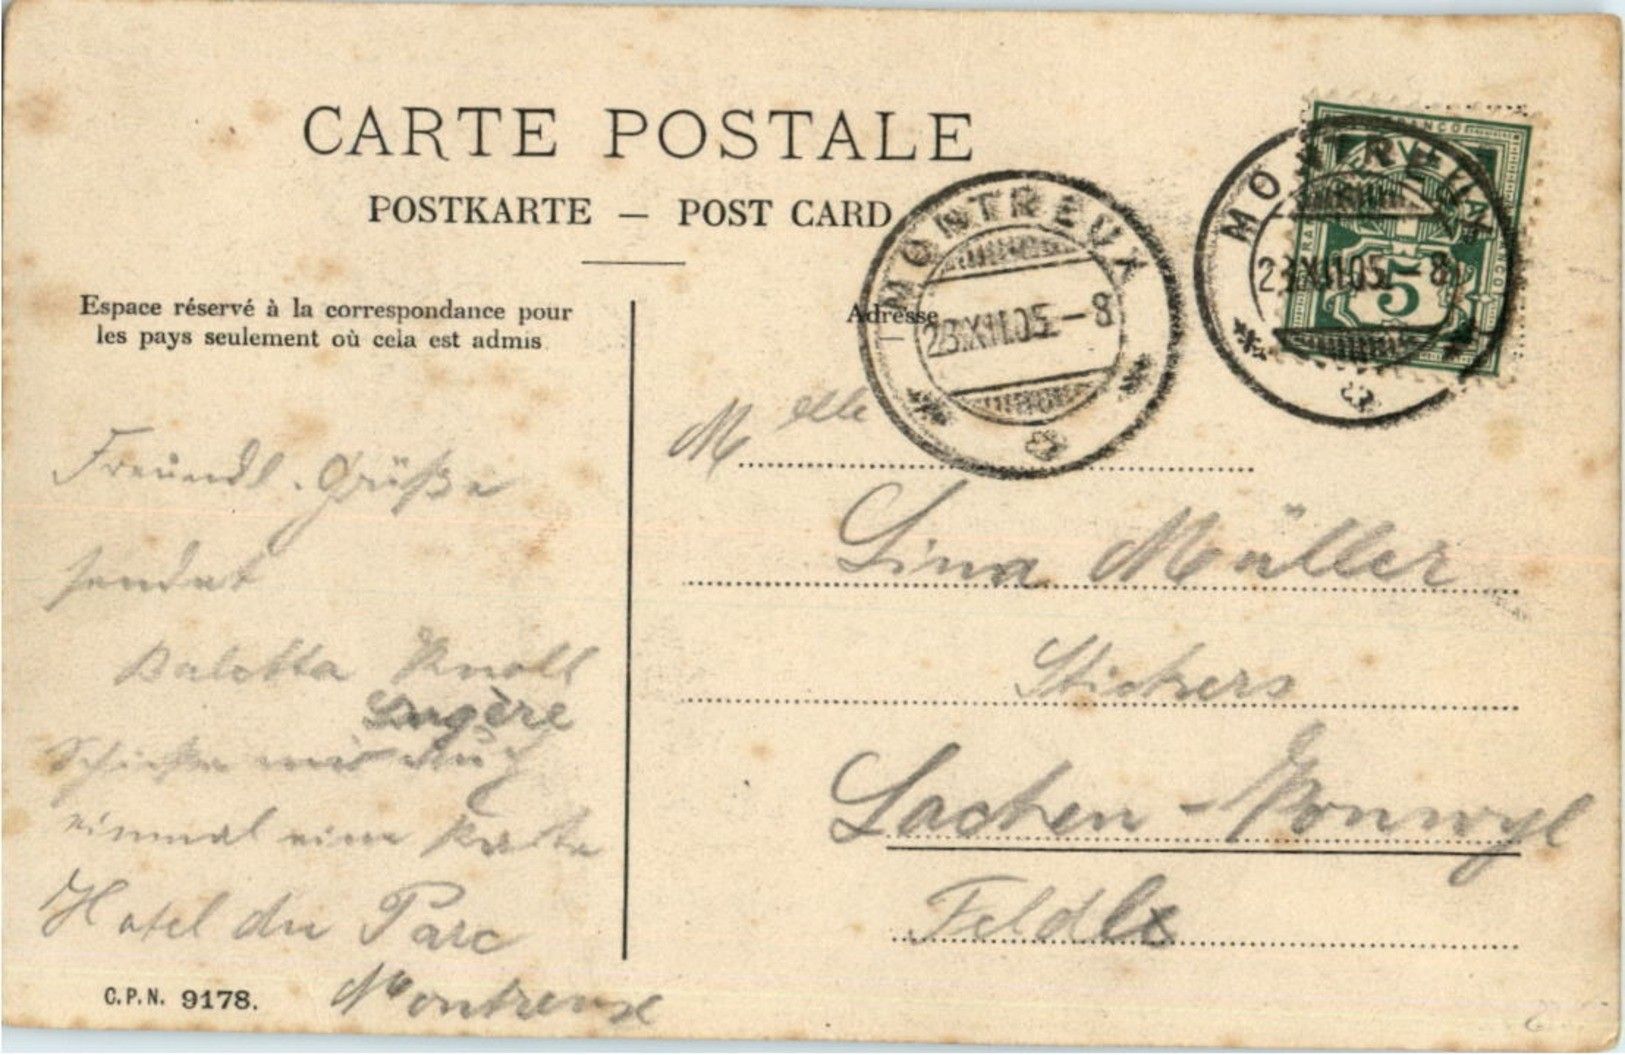 CARTE POSTALE
POSTKARTE — POST CARD
Espace réservé à la correspondance pour
les pays seulement où cela est admis
Adresse
MONTREUX
23.XII.05 - 8
MONTREUX
23.XII.05 - 8
FRANCO
5
Freundl. Grüße
sendet
Knoll
Schicke mir auch
einmal eine Karte
Hotel du Parc
Montreux
Melle
Lina Müller
Stickers
Lachen - Vonwyl
Feldle
C.P.N. 9178.